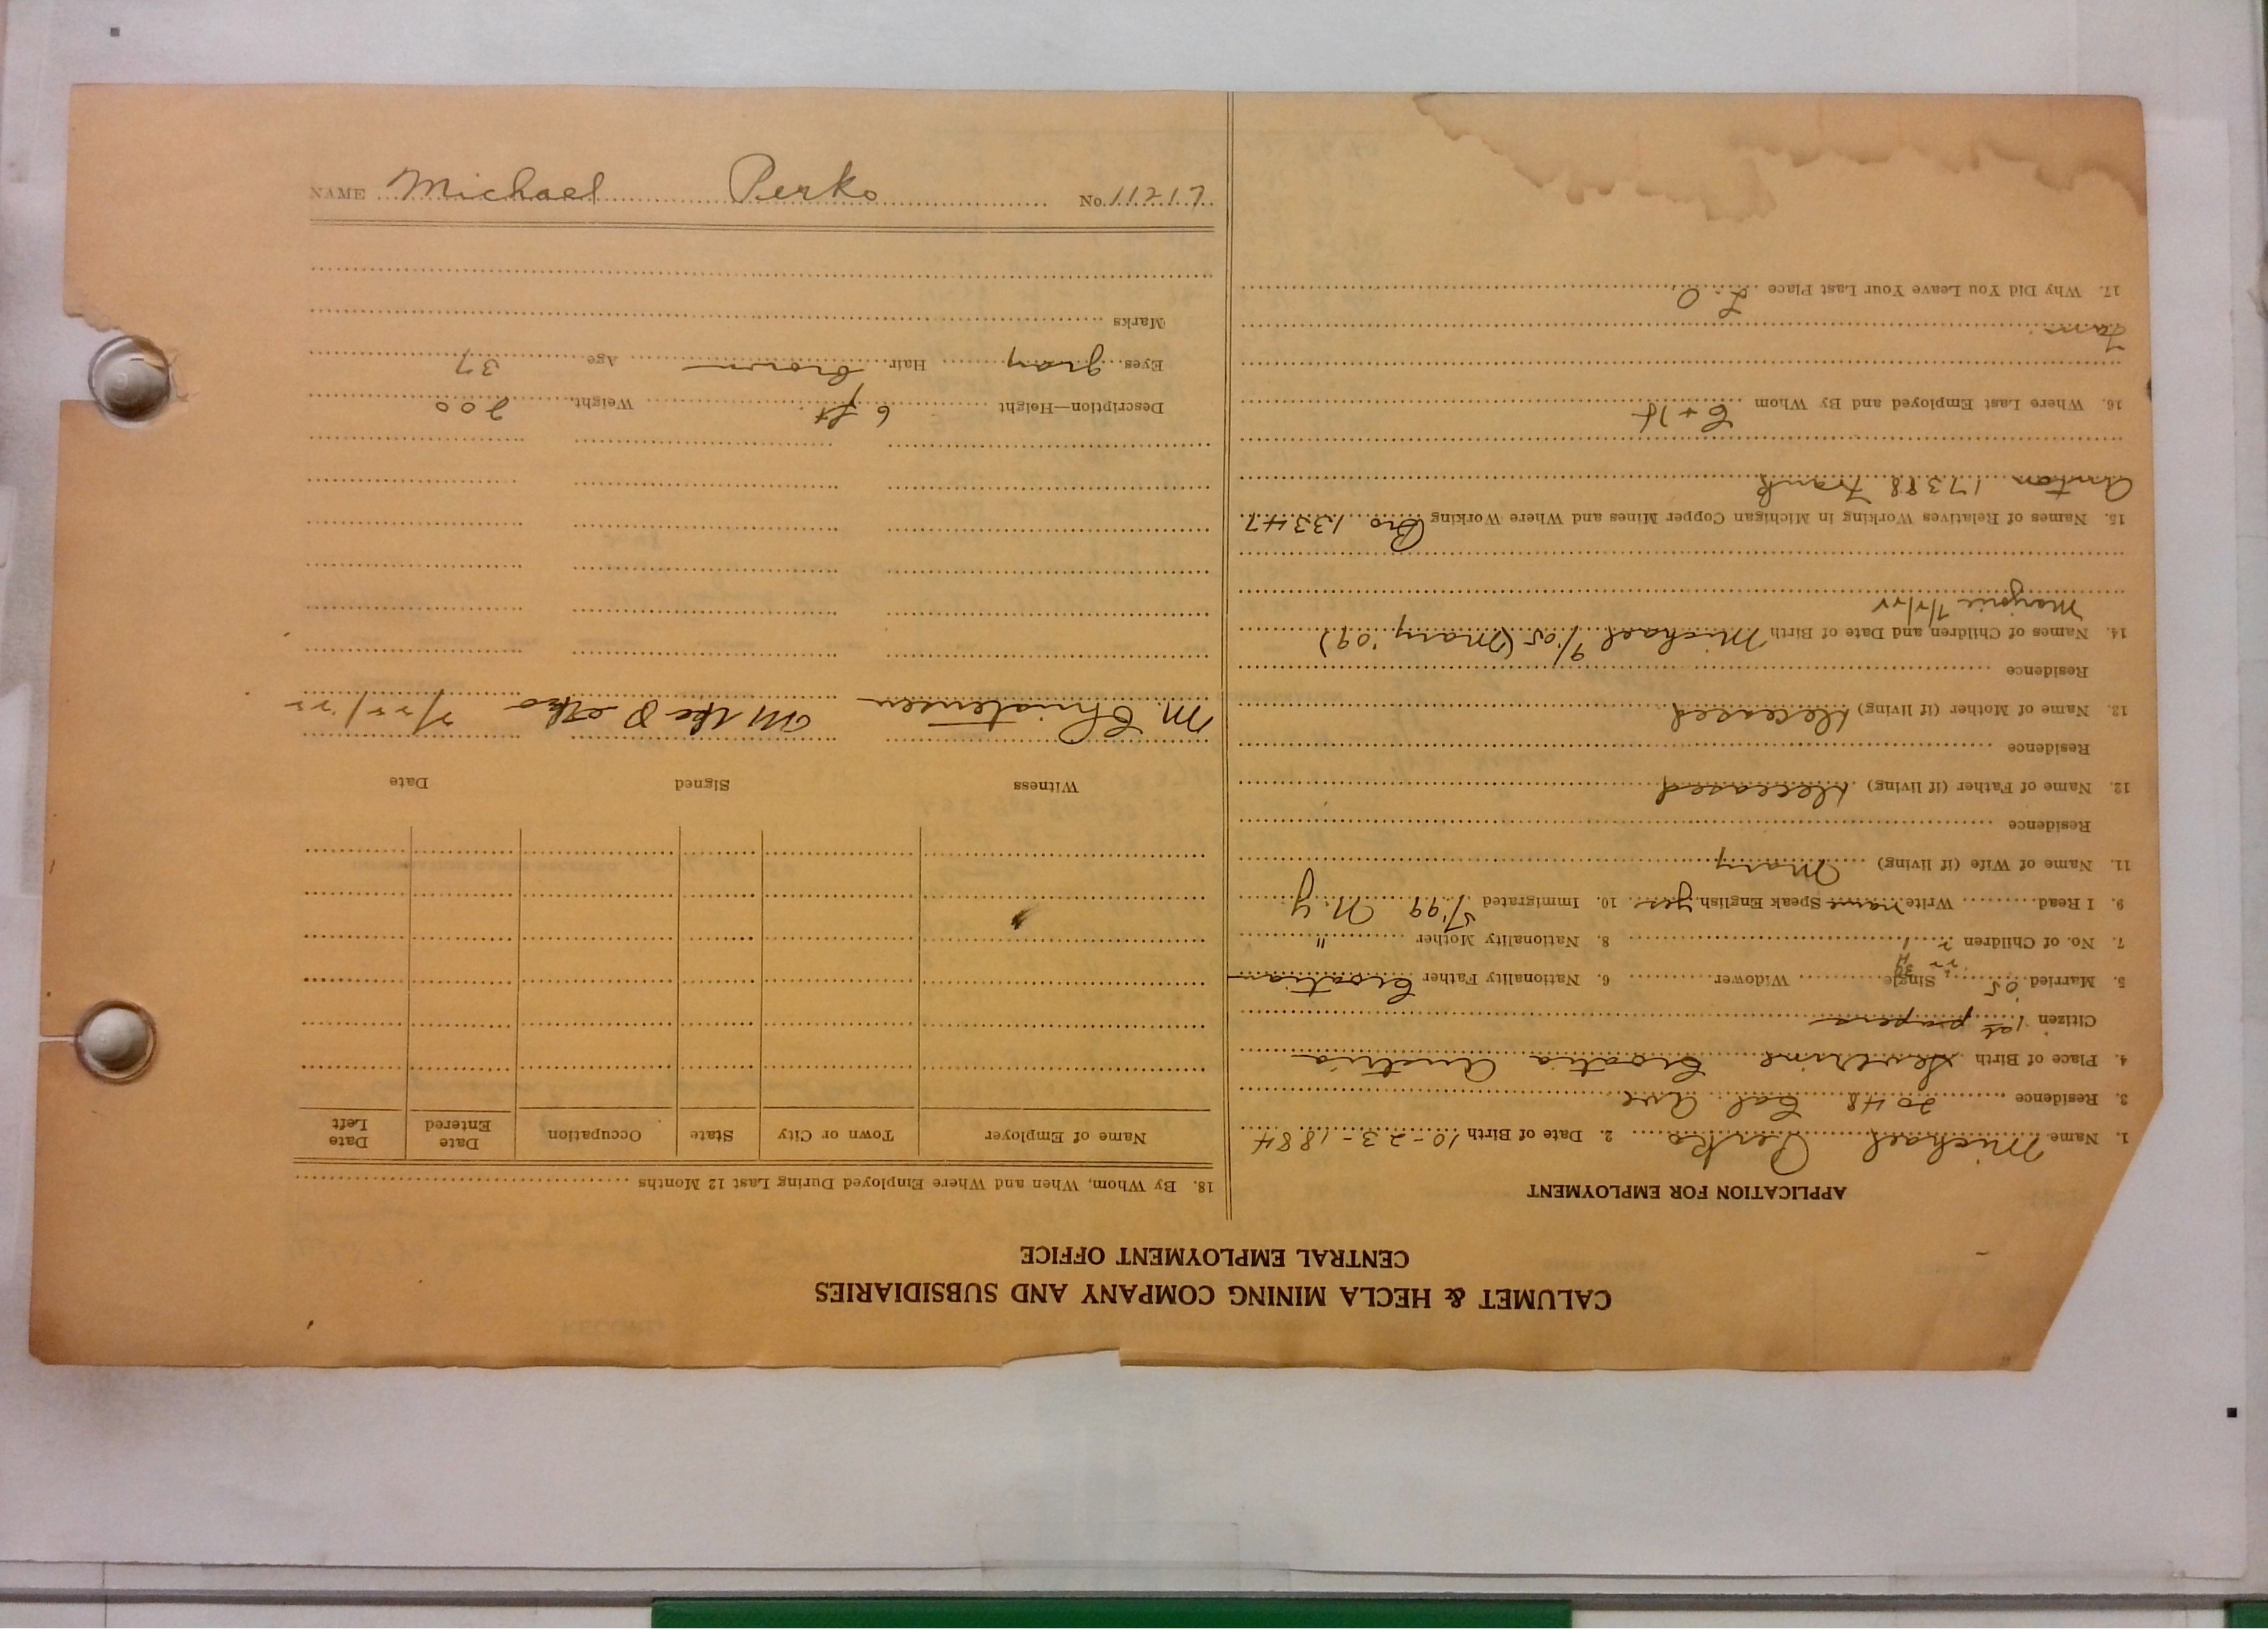 CALUMET & HECLA MINING COMPANY AND SUBSIDIARIES
CENTRAL EMPLOYMENT OFFICE
APPLICATION FOR EMPLOYMENT
1. Name Michael Perko 2. Date of Birth 10-23-1884
3. Residence 2048 Cal Ave
4. Place of Birth Severine Croatia Austria
Citizen 1st papers
5. Married '05 Single Widower 6. Nationality Father Croatian
7. No. of Children 8. Nationality Mother "
9. I Read Write name Speak English yes 10. Immigrated 5/'99 N.Y
11. Name of Wife (if living) Mary
Residence
12. Name of Father (if living) deceased
Residence
13. Name of Mother (if living) deceased
Residence
14. Names of Children and Date of Birth Michael 9/05 (Mary '09)
Marjorie
15. Names of Relatives Working in Michigan Copper Mines and Where Working Bro 13347
Anton 17388 Frank
16. Where Last Employed and By Whom C+H
17. Why Did You Leave Your Last Place L.O
18. By Whom, When and Where Employed During Last 12 Months
Name of Employer Town or City State Occupation Date Entered Date Left
Witness Signed Date
M. Christensen 7/22/22
Description—Height 6 ft Weight 200
Eyes gray Hair brown Age 37
Marks
NAME Michael Perko No. 11217